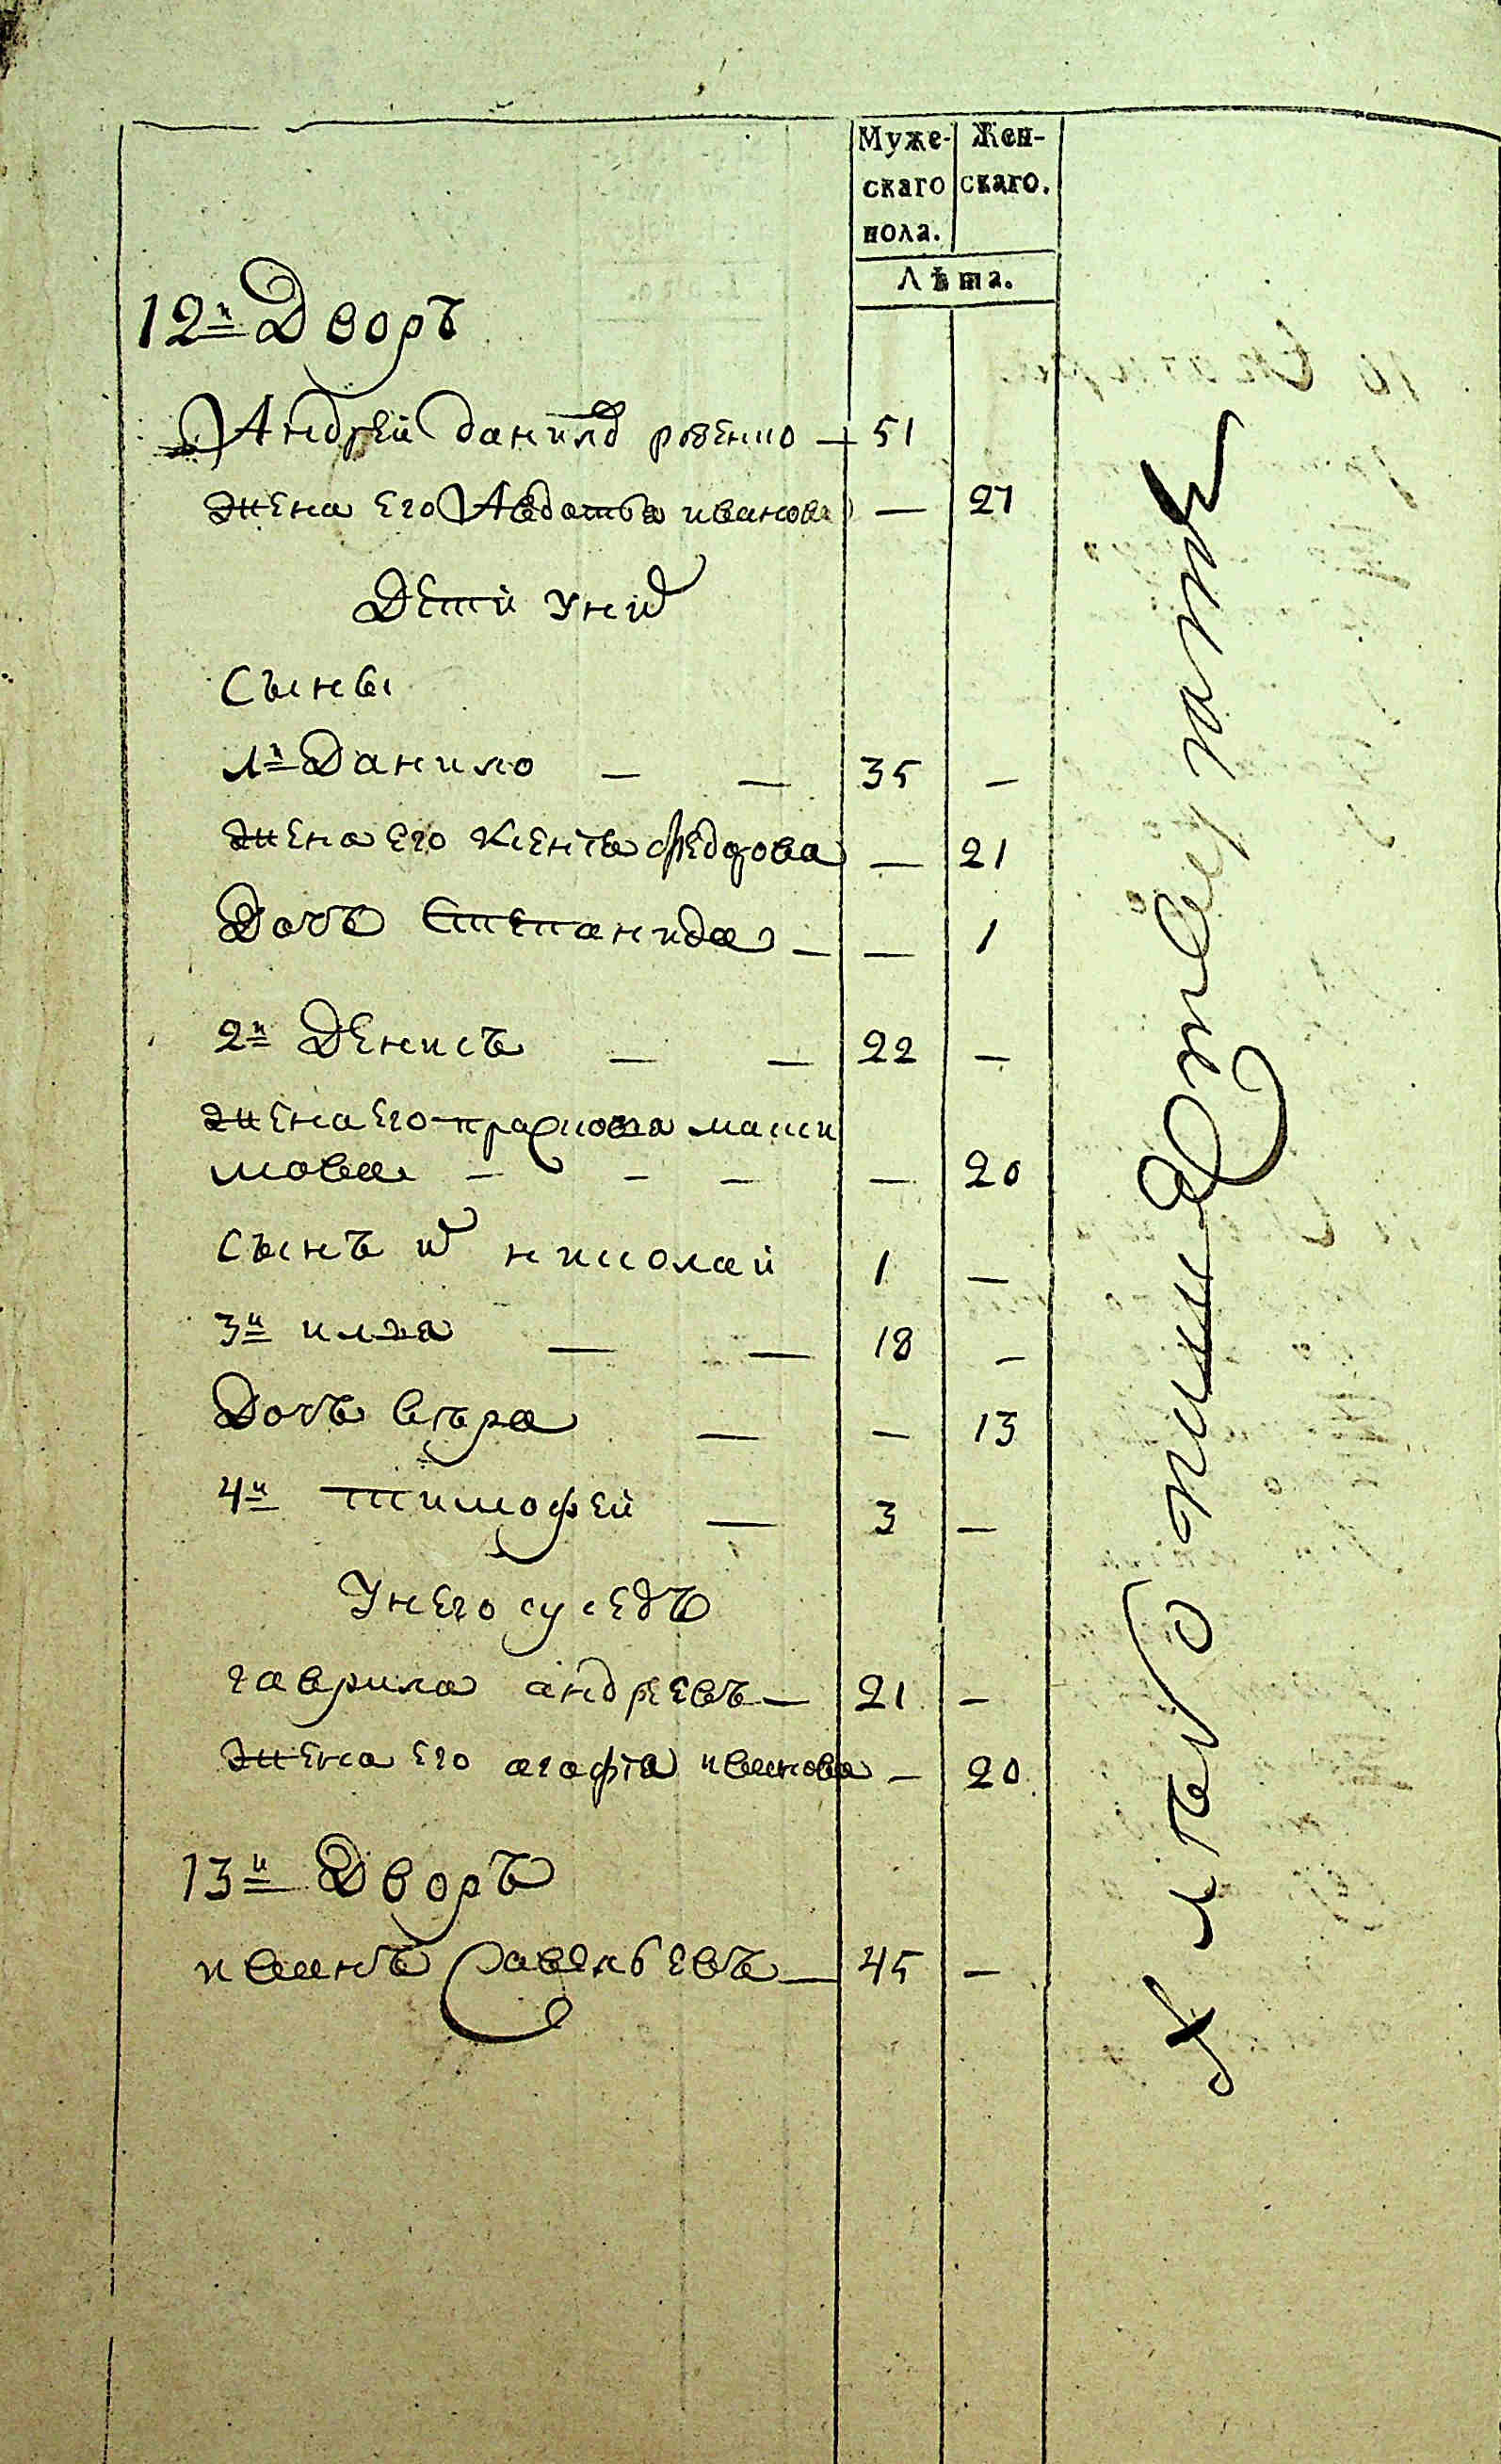 Муже- Жен-
скаго скаго.
пола.
Лѣта.
12й Дворъ
Андрей данилов ровенко — 51
жена его Авдотья иванова — 27
Дети у них
Сыны
1й Данило — — 35 —
жена его ксенья федорова — 21
Дочь Степанида — — 1
2й Денисъ — — 22 —
жена его прасковья макси
мова — — — — 20
Сынъ их николай 1 —
3й илья — — 18 —
Дочь вѣра — — 13
4й тимофей — 3 —
У него суседъ
гаврила андреевъ — 21 —
жена его агафья иванова — 20
13й Дворъ
иванъ Савельевъ — 45 —